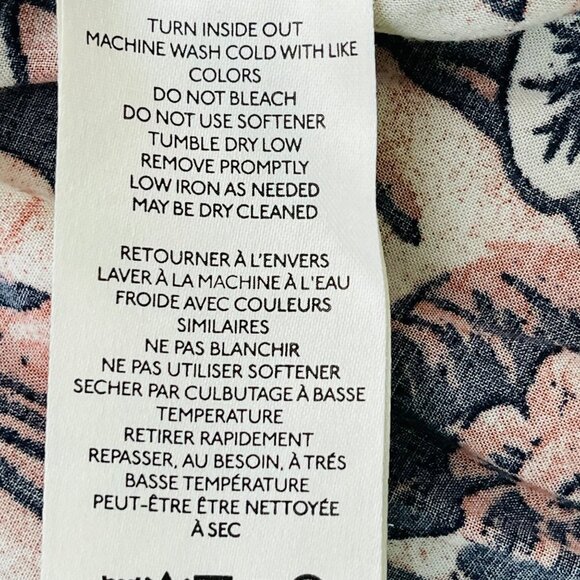 TURN INSIDE OUT
MACHINE WASH COLD WITH LIKE
COLORS
DO NOT BLEACH
DO NOT USE SOFTENER
TUMBLE DRY LOW
REMOVE PROMPTLY
LOW IRON AS NEEDED
MAY BE DRY CLEANED
RETOURNER À L'ENVERS
LAVER À LA MACHINE À L'EAU
FROIDE AVEC COULEURS
SIMILAIRES
NE PAS BLANCHIR
NE PAS UTILISER SOFTENER
SECHER PAR CULBUTAGE À BASSE
TEMPERATURE
RETIRER RAPIDEMENT
REPASSER, AU BESOIN, À TRÉS
BASSE TEMPÉRATURE
PEUT-ÊTRE ÊTRE NETTOYÉE
À SEC